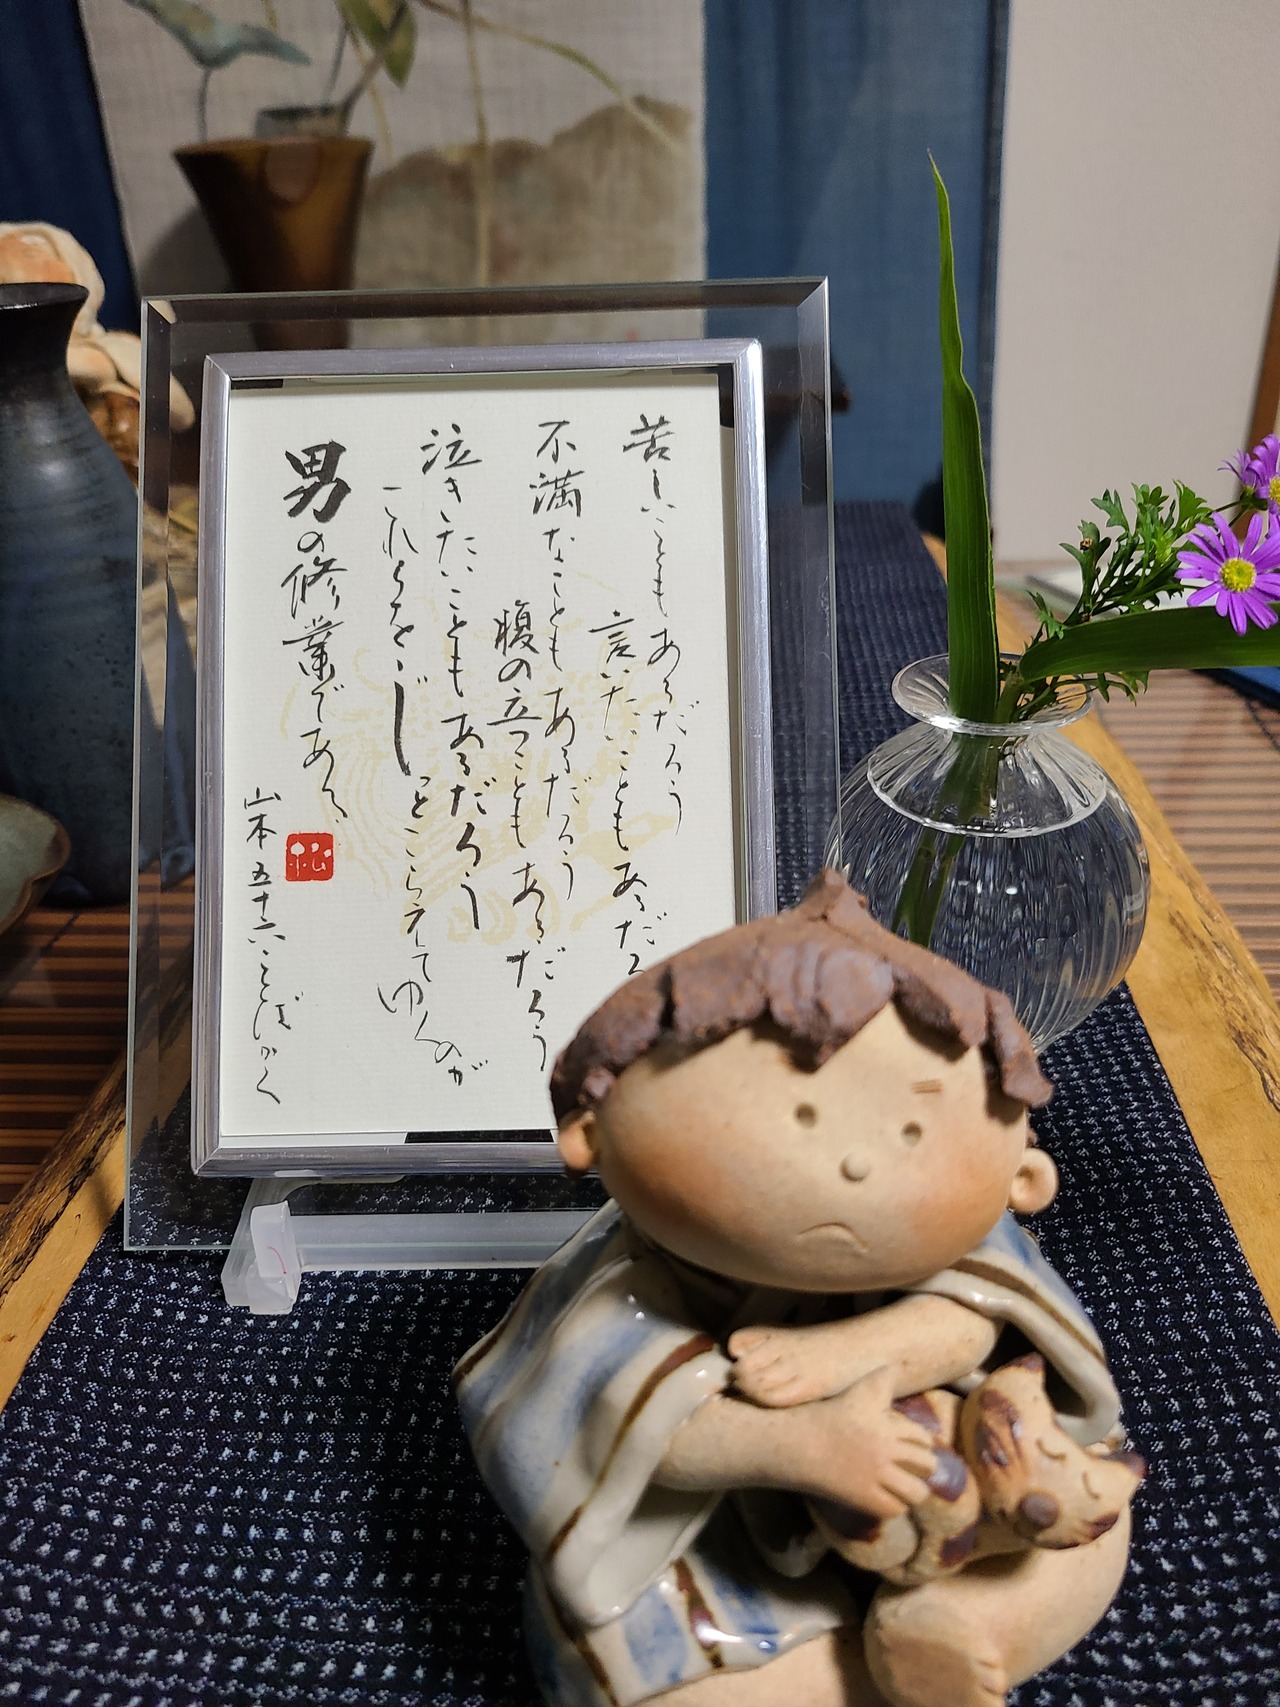 苦しいこともあるだろう
言いたいこともあるだろ
不満なこともあるだろう
腹の立つこともあるだろう
泣きたいこともあるだろう
これらをじっとこらえてゆくのが
男の修業である
山本五十六ことばかく